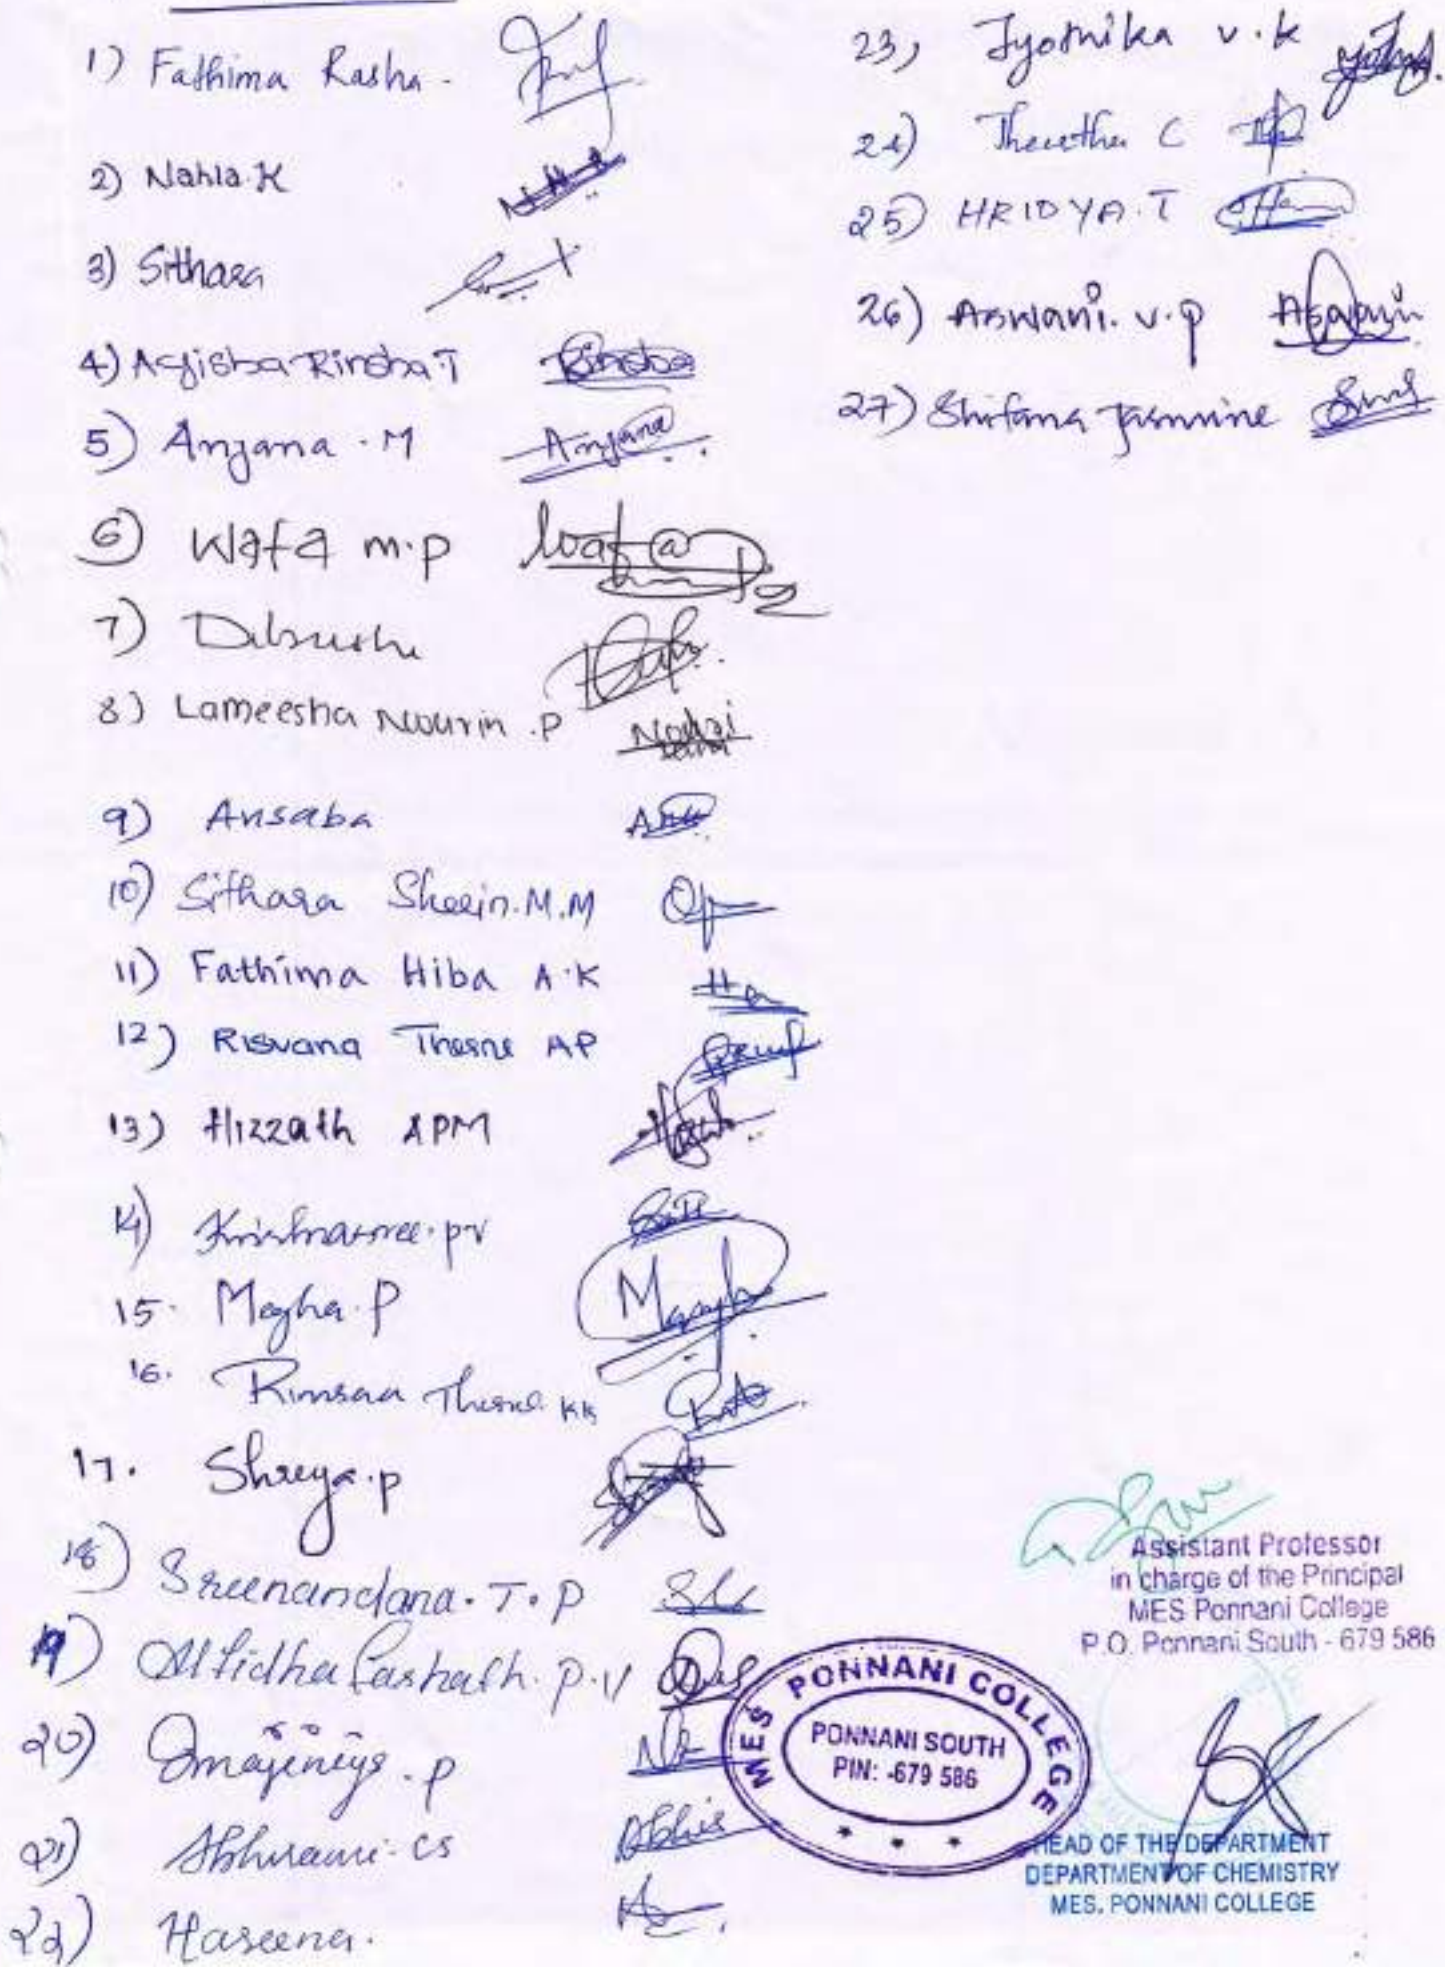 1) Fathima Rasha.
2) Nahla.K
3) Sithara
4) Ayisha Rinsha.T Rinsha
5) Anjana.M Anjana
6) Wafa m.p Wafa
7) Dilsusha
8) Lameesha Nourin.P
9) Ansaba
10) Sithara Sherin.M.M
11) Fathima Hiba A.K
12) Risvana Thesne AP
13) Hizzath APM
14) Krishnasree.pv
15. Megha.P
16. Rinsaa Thesne KK
17. Shreya.p
18) Sreenandana.T.P
19) P.V
20) .P
21) Abhirami.CS Abhis
22) Haseena.
23, Jyothika v.k
24) C
25) HRIDYA.T
26) Aswani.v.p Aswani
27) Shifana Jasmine
Assistant Professor
in charge of the Principal
MES Ponnani College
P.O. Ponnani South - 679 586
MES PONNANI COLLEGE
PONNANI SOUTH
PIN: -679 586
HEAD OF THE DEPARTMENT
DEPARTMENT OF CHEMISTRY
MES. PONNANI COLLEGE